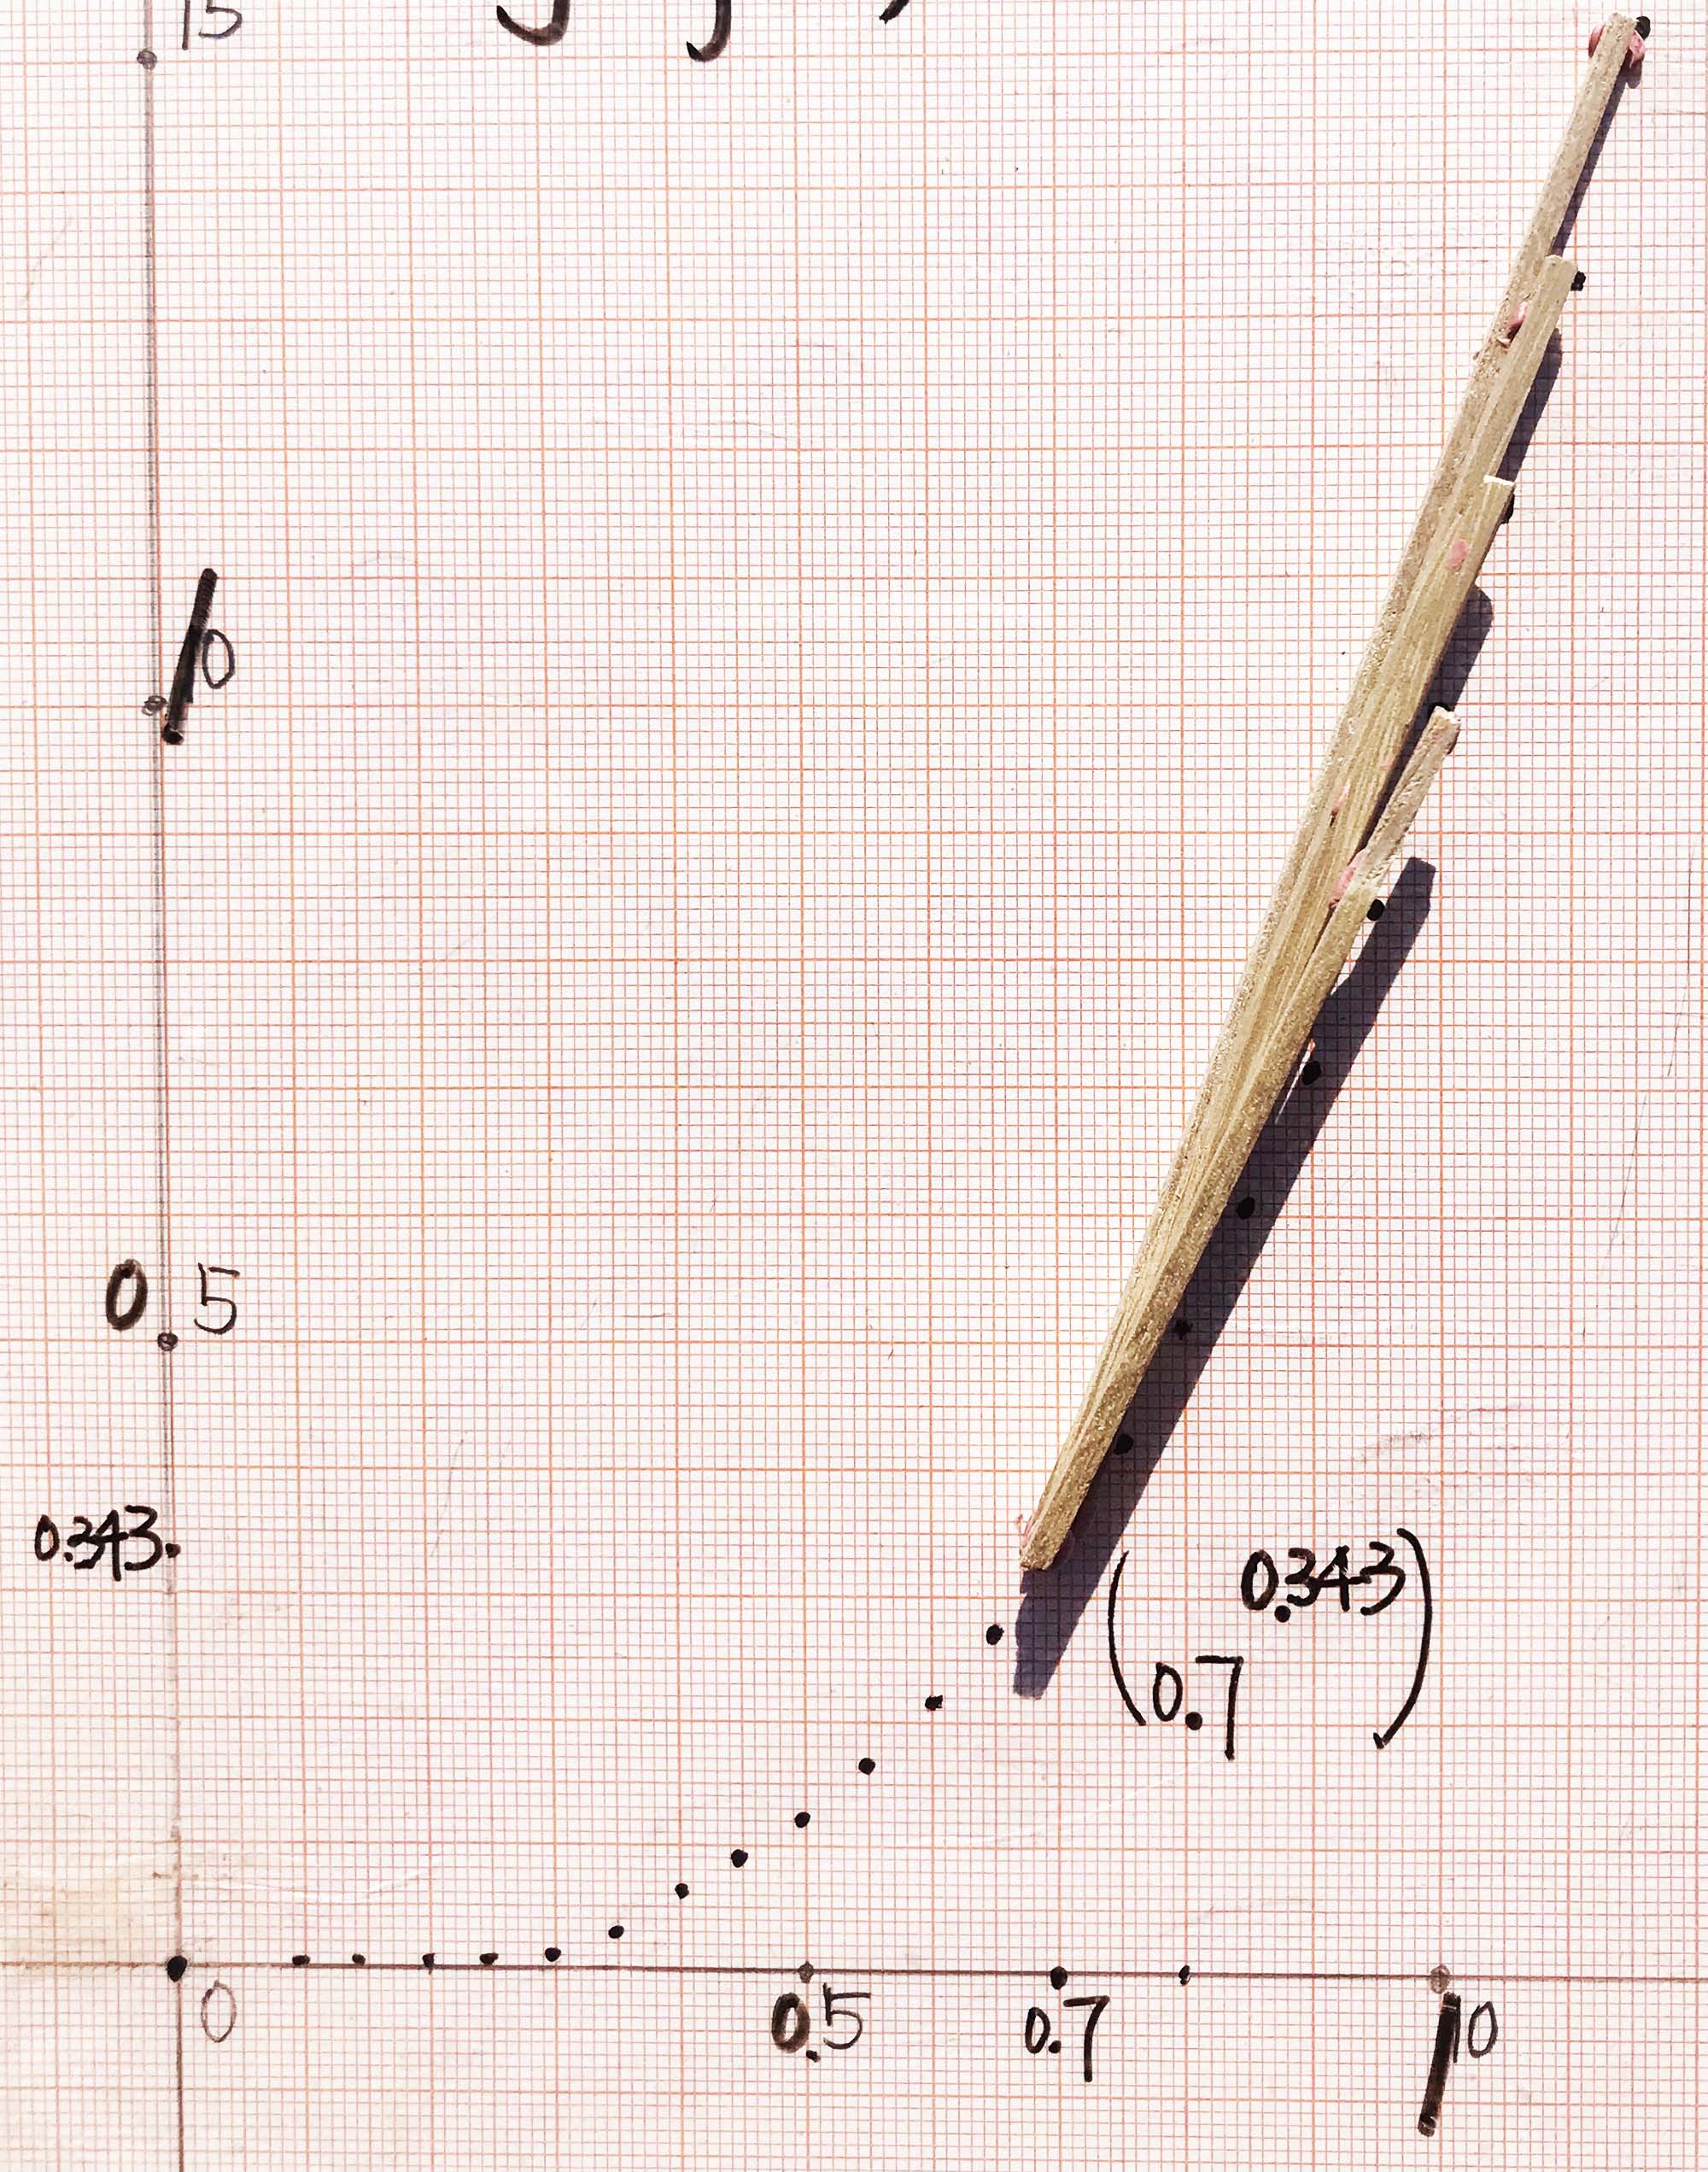 15
10
0.5
0.343
0.343
0.7
0
0.5
0.7
10